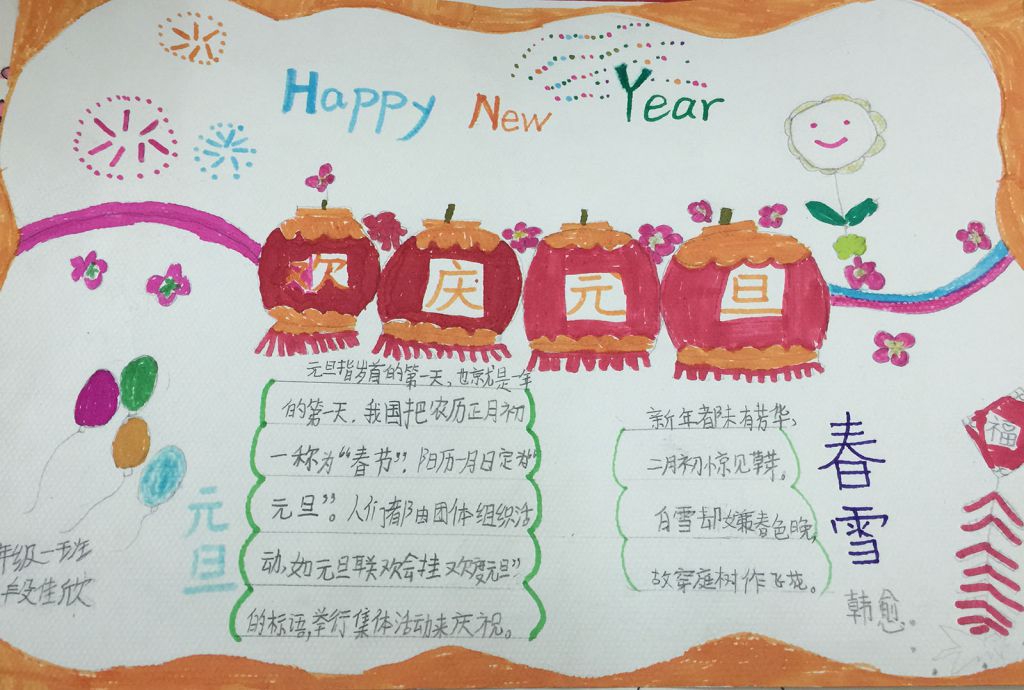 Happy New Year
欢庆元旦
元旦指岁首的第一天,也就是一年
的第一天.我国把农历正月初
一称为“春节”.阳历一月日定为“
元旦”。人们都由团体组织活
动,如元旦联欢会挂欢度元旦”
的标语,举行集体活动来庆祝。
元旦
年级一班
段佳欣
新年都未有芳华,
二月初惊见草芽。
白雪却嫌春色晚,
故穿庭树作飞花。
春雪
韩愈
福